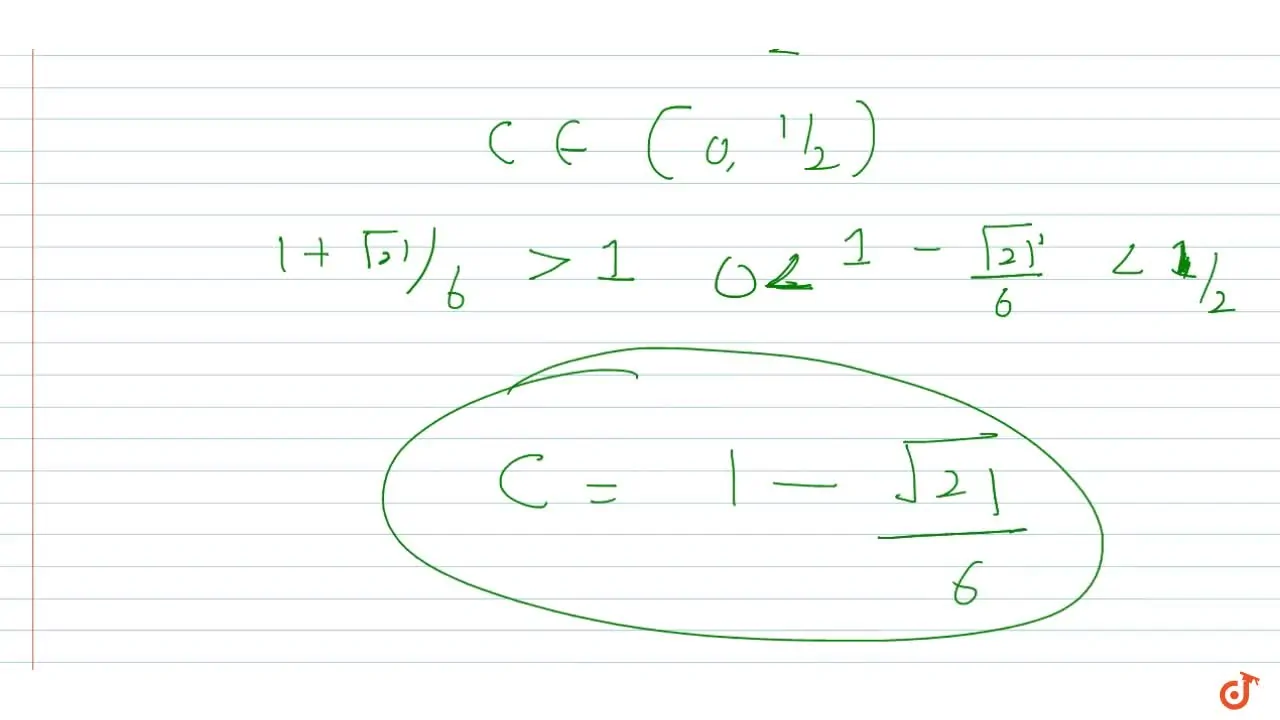 C ∈ (0, 1/2)
1 + √21/6 > 1 0 < 1 - √21/6 < 1/2
C = 1 - √21/6